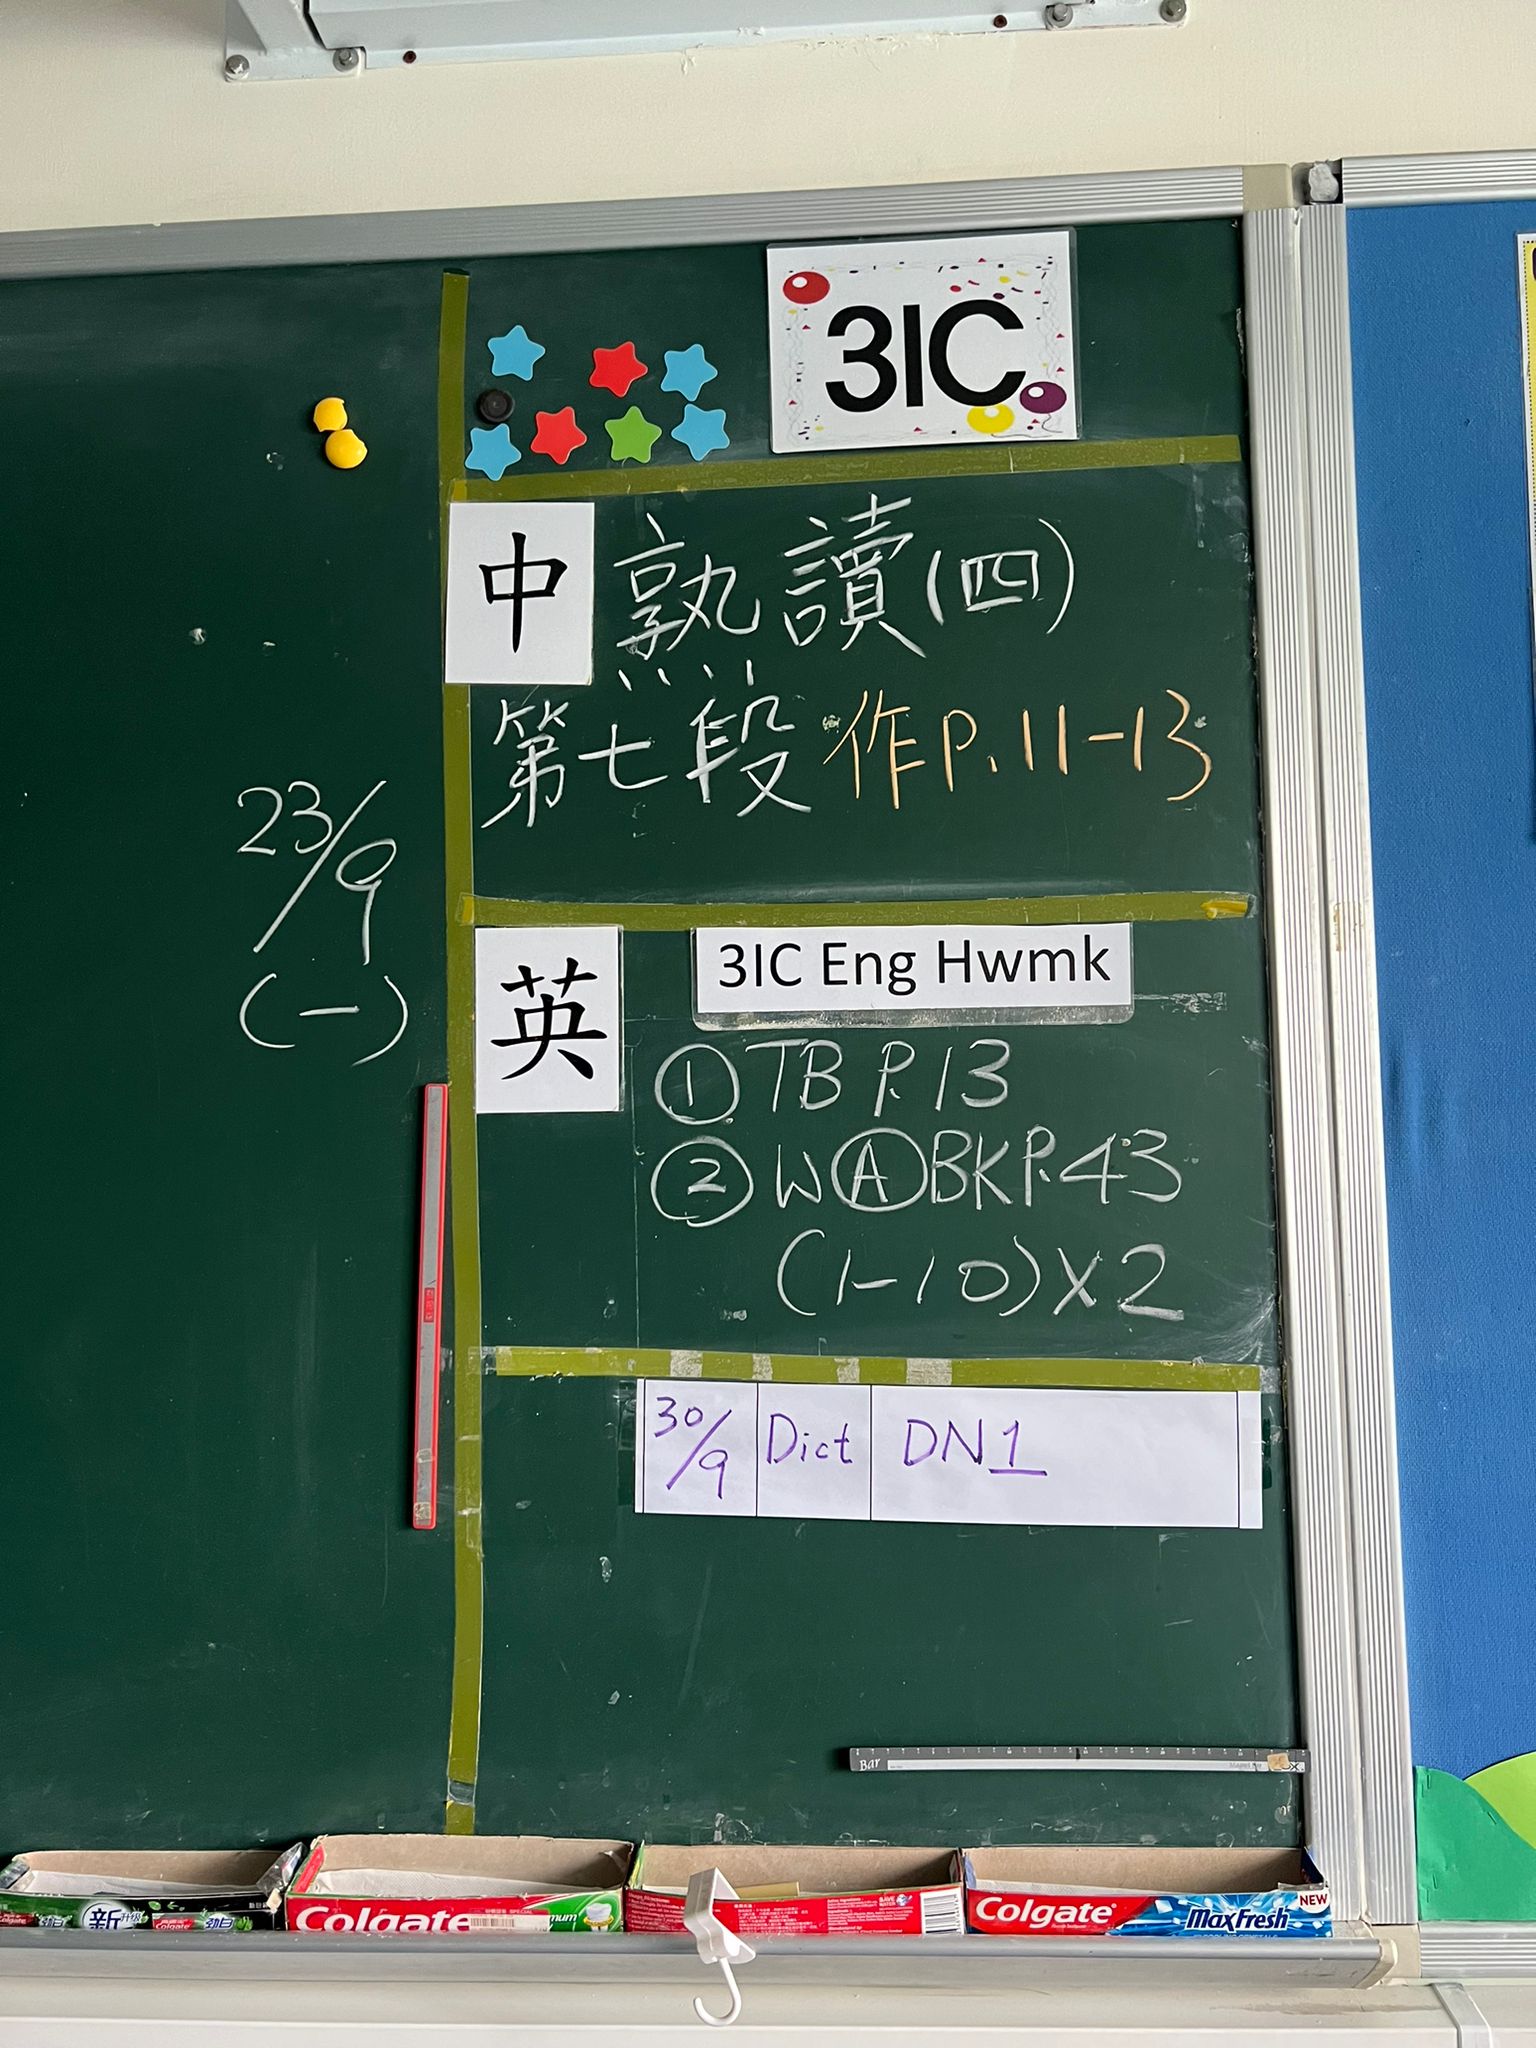 3IC
中 熟讀(四)
第七段 作P.11-13
23/9
(一)
英 3IC Eng Hwmk
① TB P.13
② WⒶBK P.43
(1-10)X2
30/9 Dict DN1
Bar
新升级
Colgate
Colgate
Colgate
MaxFresh
NEW